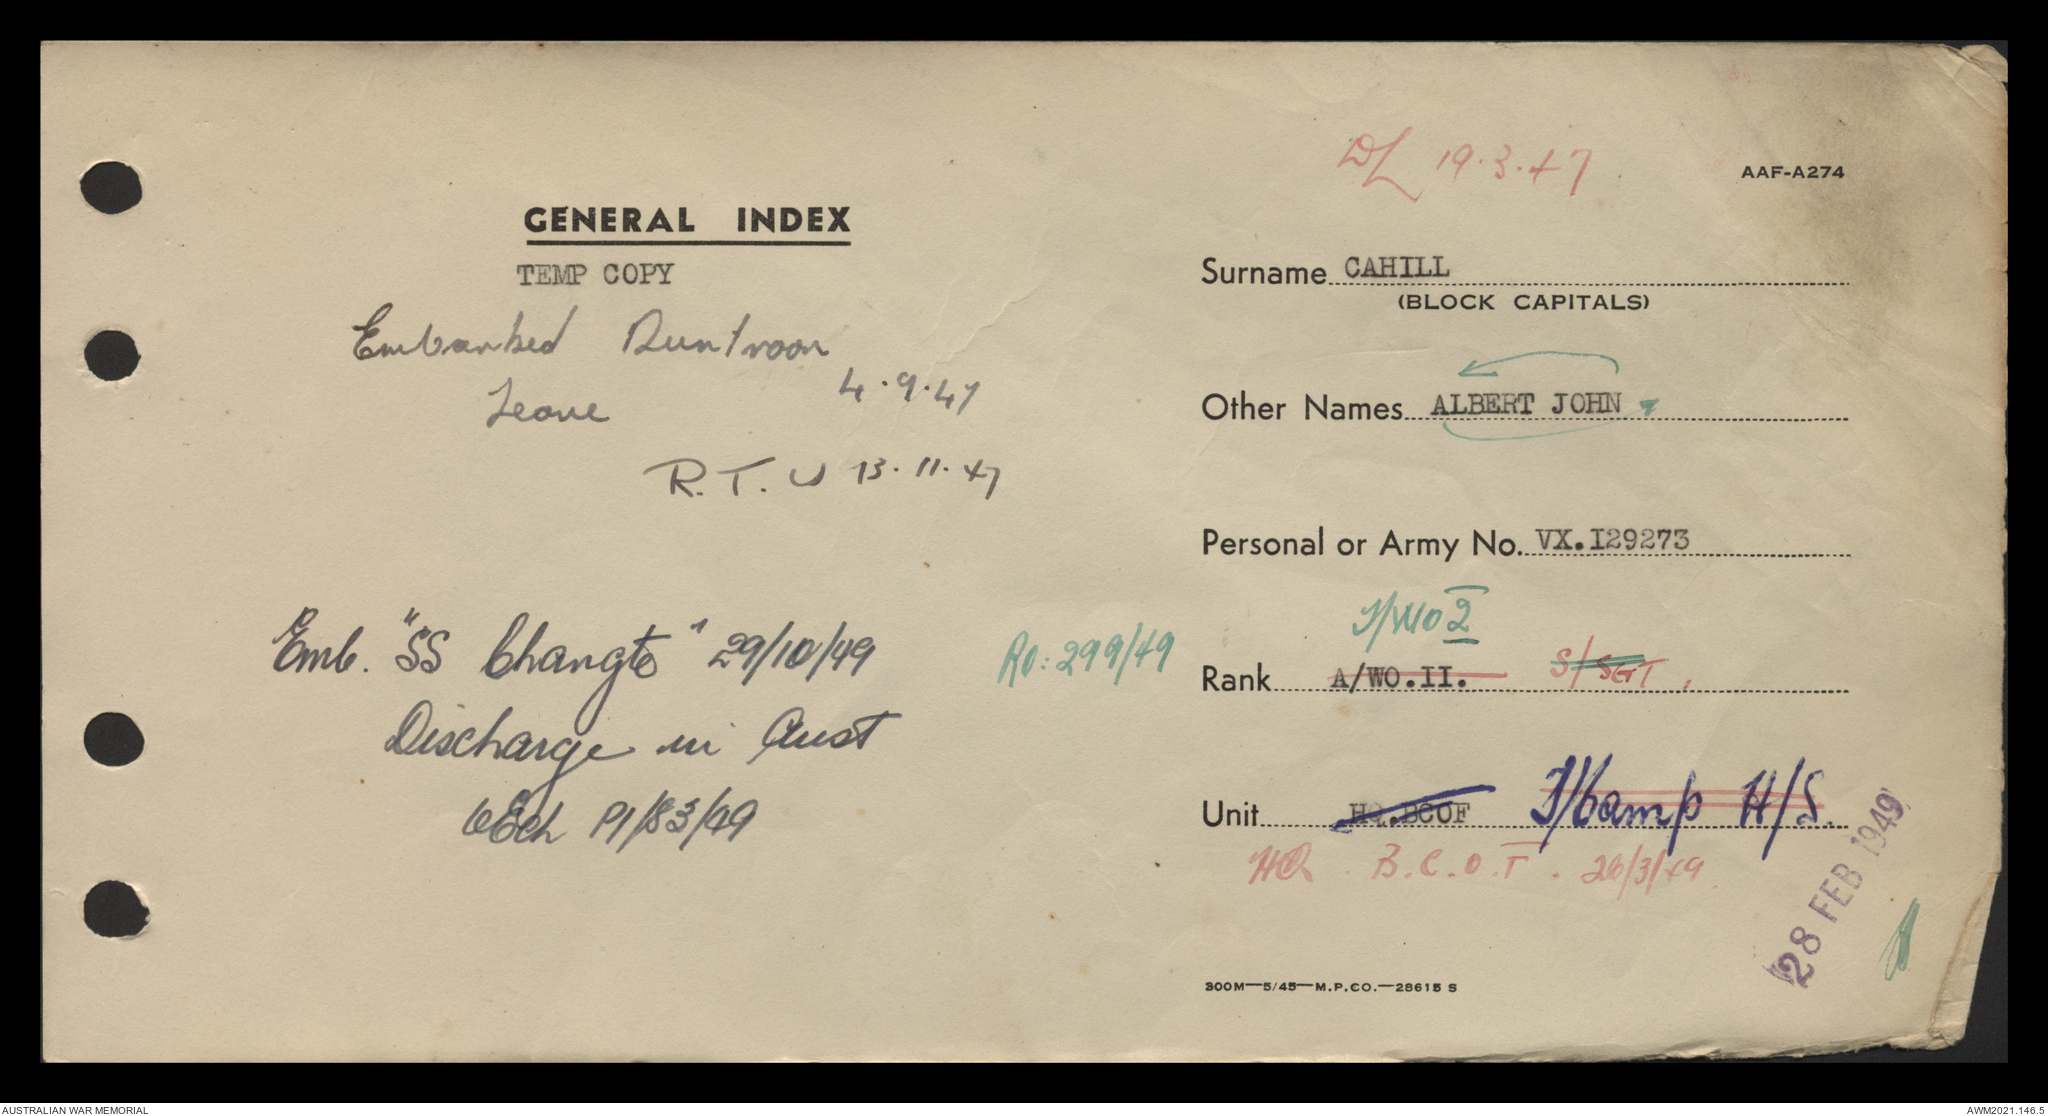 GENERAL INDEX
TEMP COPY
Embarked Duntroon
4.9.47
Leave
R.T.U 13.11.47
Emb. "SS Changte" 29/10/49
Discharge in Aust
2Ech P1/83/49
RO: 299/49
DL 19.3.47
AAF-A274
Surname CAHILL
(BLOCK CAPITALS)
Other Names ALBERT JOHN
Personal or Army No. VX.I29273
T/WO2
Rank A/WO.II. S/SGT.
Unit HQ.BCOF T/Camp H/S.
HQ. B.C.O.F. 26/3/49.
28 FEB 1949
300M—5/45—M.P.CO.—28615 S
AUSTRALIAN WAR MEMORIAL
AWM2021.146.5